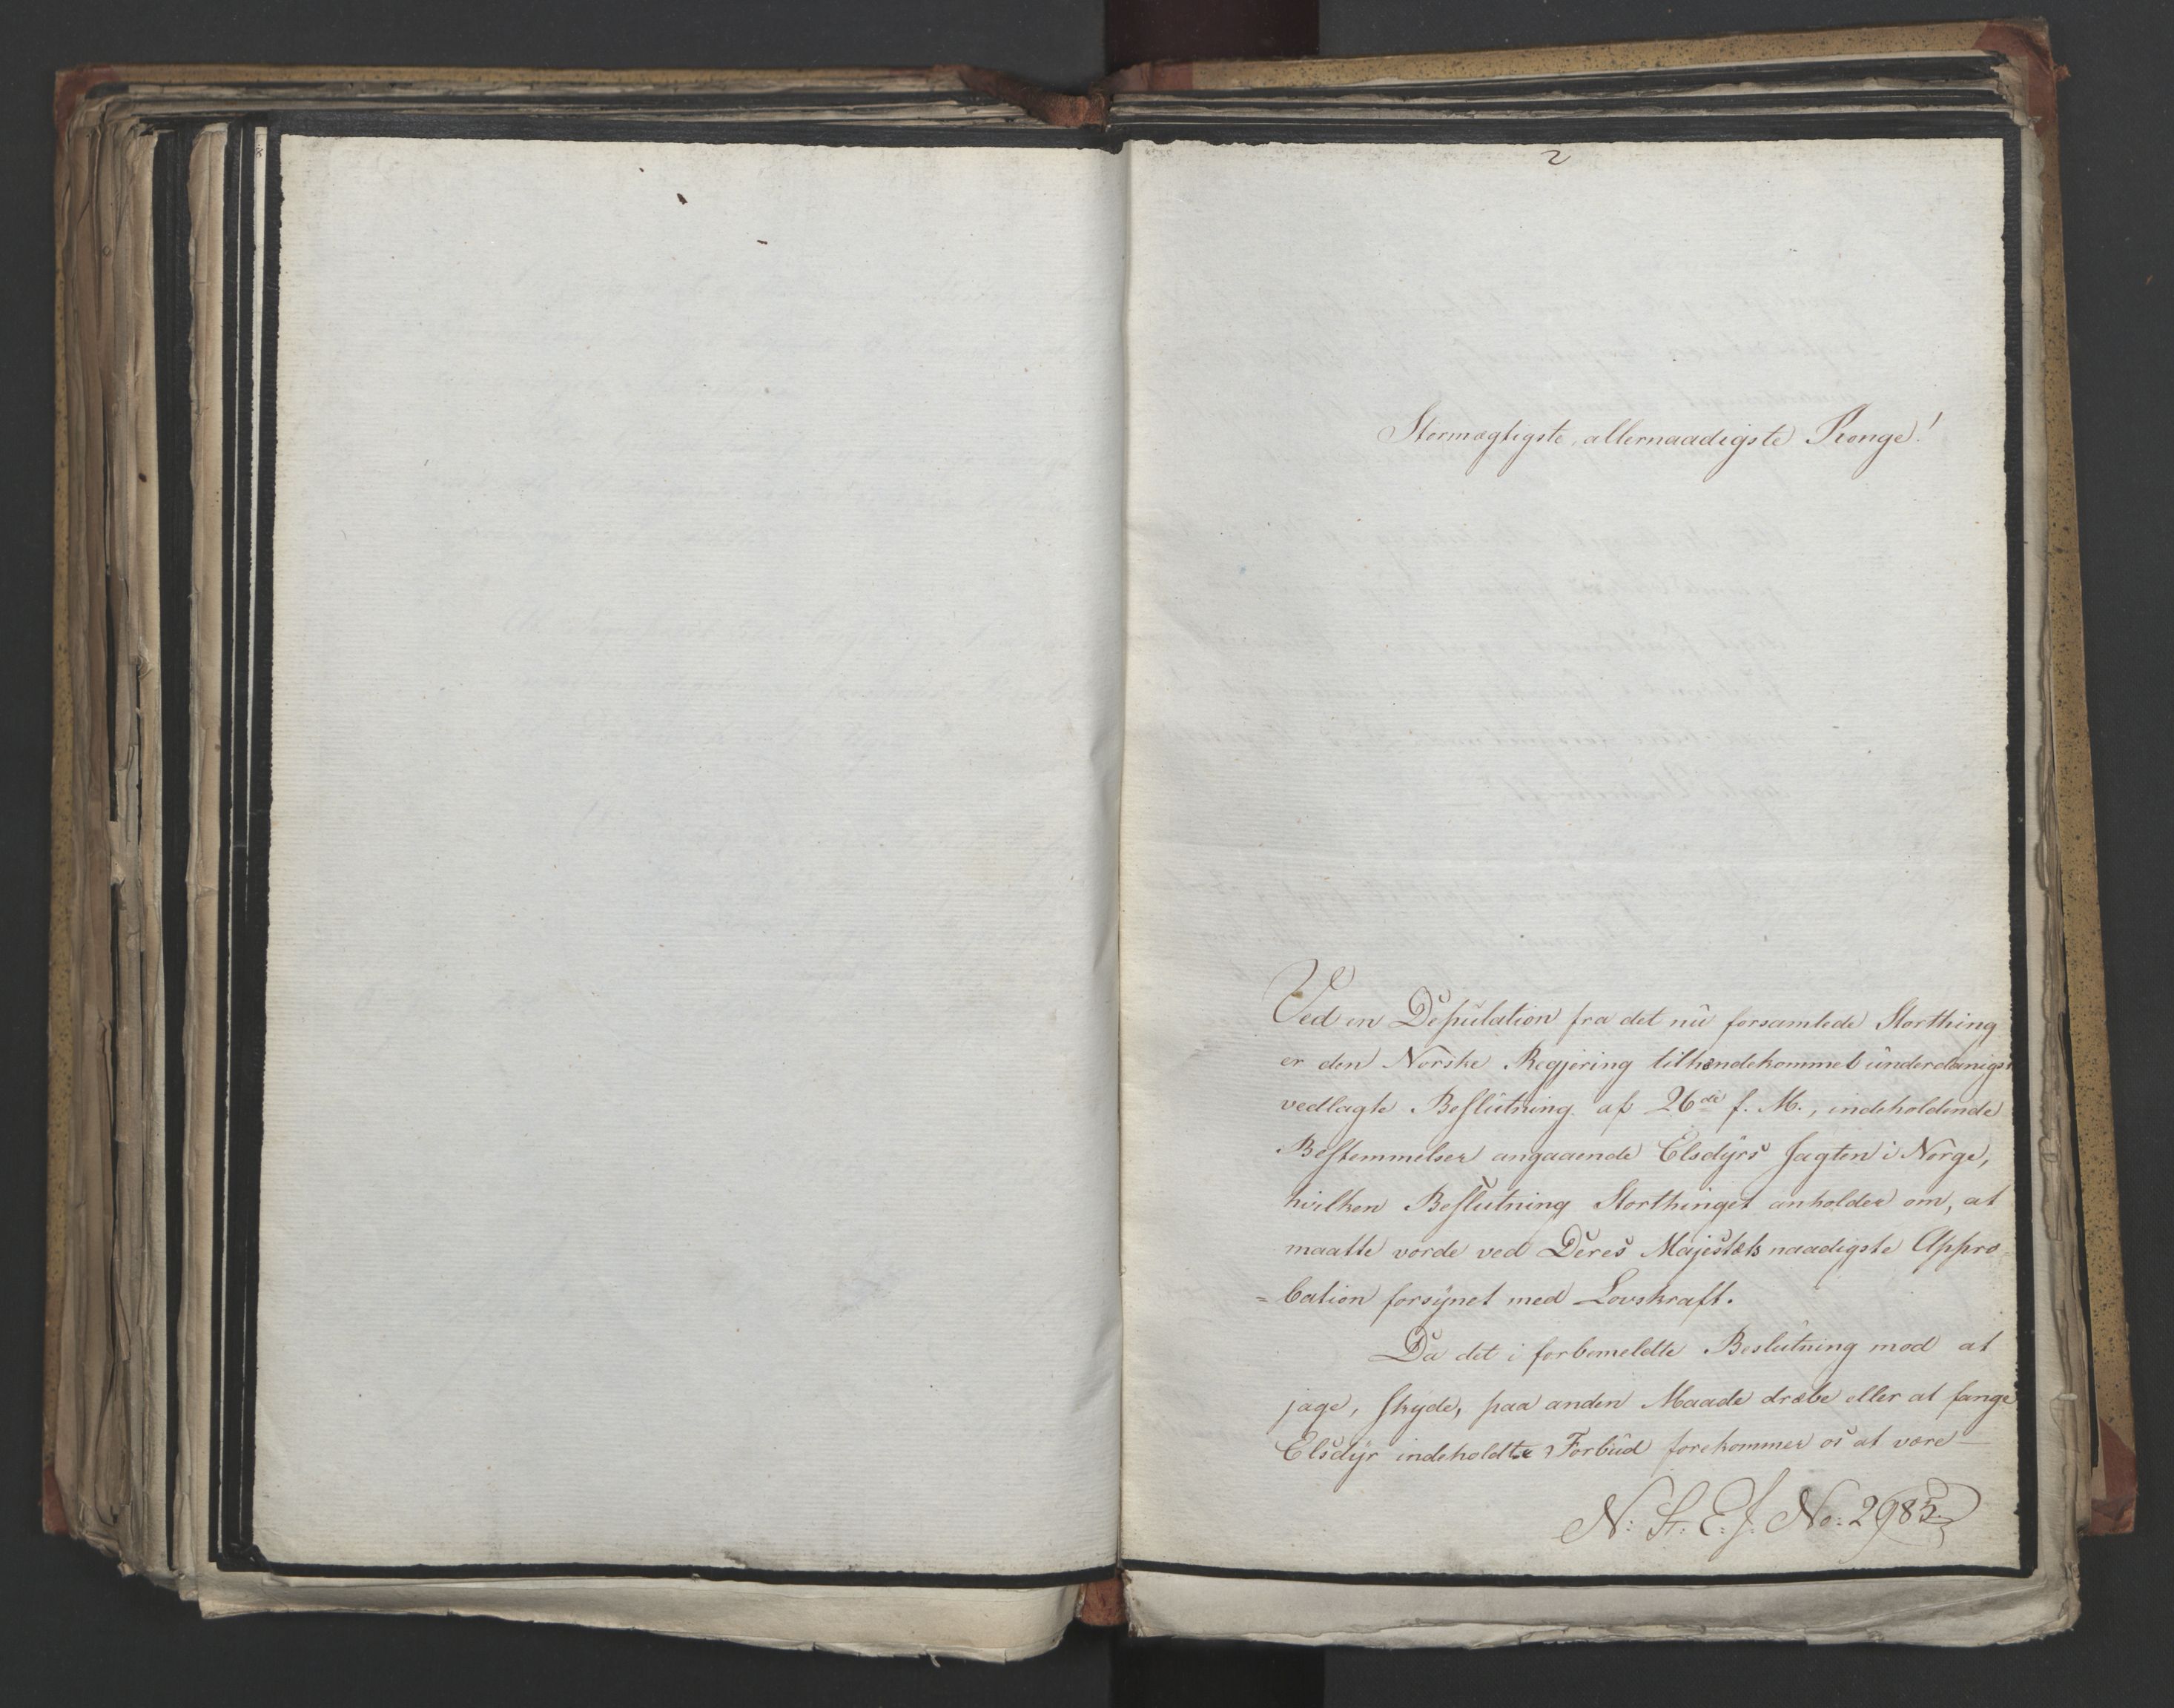 2
Stormægtigste, allernaadigste Konge!
Ved en Deputation fra det nu forsamlede Storthing
er den Norske Regjering tilhændekommet underdanigst
vedlagte Beslutning af 26de f. M., indeholdende
Bestemmelser angaaende Elsdyrs Jagten i Norge,
hvilken Beslutning Storthinget anholder om, at
maatte vorde ved Deres Majestæts naadigste Appro
= bation forsynet med Lovskraft.
Da det i forbemeldte Beslutning mod at
jage, skyde, paa anden Maade dræbe eller at fange
Elsdyr indeholdte Forbud forekommer os at være
N: St. E. J. No: 2983.